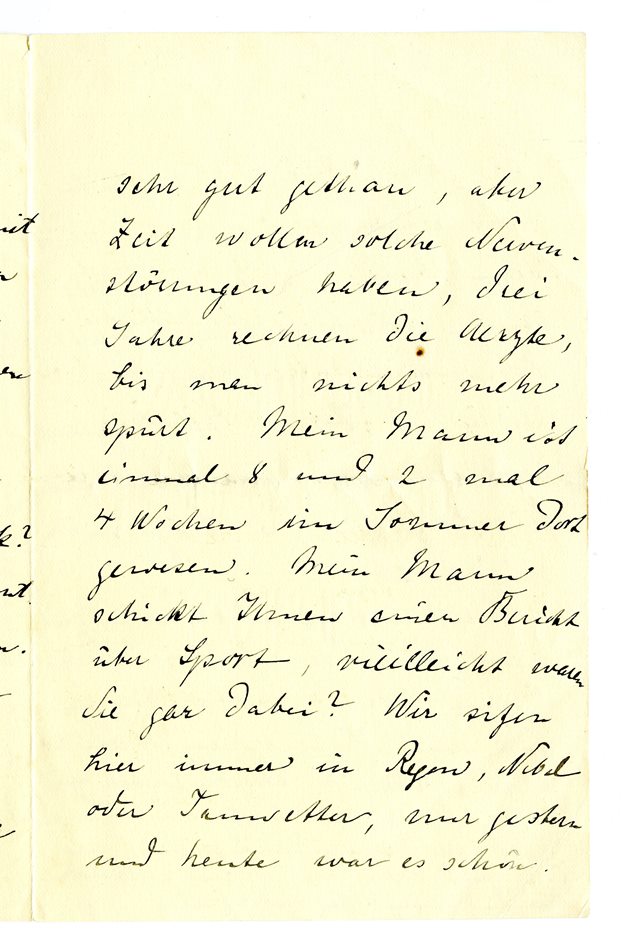 sehr gut gethan, aber
Zeit wollen solche Nerven-
störungen haben, drei
Jahre rechnen die Aerzte,
bis man nichts mehr
spürt. Mein Mann ist
einmal 8 und 2 mal
4 Wochen im Sommer dort
gewesen. Mein Mann
schickt Ihnen einen Bericht
über Sport, vieilleicht waren
Sie gar dabei? Wir sitzen
hier immer in Regen, Nebel
oder Tauwetter, nur gestern
und heute war es schön.